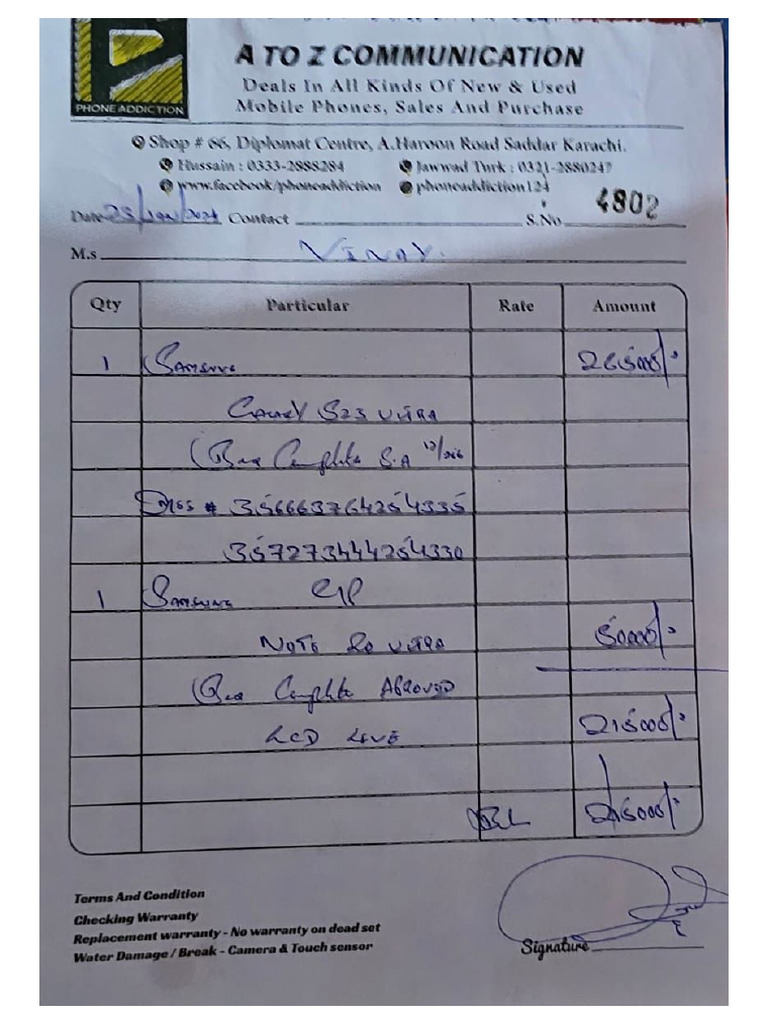 PHONE ADDICTION
A TO Z COMMUNICATION
Deals In All Kinds Of New & Used
Mobile Phones, Sales And Purchase
Shop # 66, Diplomat Centre, A.Haroon Road Saddar Karachi.
Hussain : 0333-2888284 Jawwad Turk : 0321-2880247
www.facebook/phoneaddiction phoneaddiction124
Date 25/Jan/2024 Contact S.No 4802
M.s Vinay.
Qty Particular Rate Amount
1 Samsung 265000/-
Galaxy S23 Ultra
(Box Complete S.A 12/256
356663764254335
357273444254330
1 Samsung
Note 20 Ultra 50000/-
(Box Complete Approved
LCD 215000/-
215000/-
Terms And Condition
Checking Warranty
Replacement warranty - No warranty on dead set
Water Damage / Break - Camera & Touch sensor
Signature